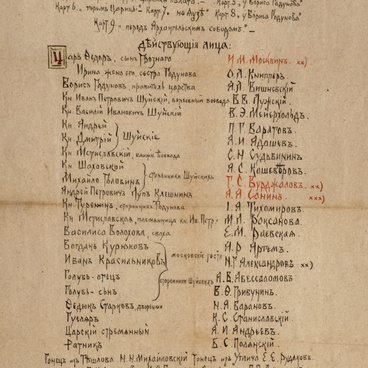 Карт. 5, у Бориса Годунова
Карт 6., терем Царицы. Карт 7. на Яузѣ. Карт 8., у Бориса Годунова
Карт 9 - перед Архангельским собором -
Дѣйствующія лица:
Царь Ѳедоръ, сынъ Грознаго И. М. Москвинъ. хх)
Ирина, жена его, сестра Годунова О. Л. Книпперъ
Борисъ Годуновъ, правитель царства А. Л. Вишневскій
Кн. Иванъ Петровичъ Шуйскій, верховный воевода В. В. Лужскій.
Кн. Василій Ивановичъ Шуйскій В. Э. Мейерхольдъ.
Кн. Андрей П. Г. Баратовъ
Кн. Дмитрій } Шуйскіе А. И. Адашевъ.
Кн. Мстиславскій, ближн. воевода С. Н. Судьбининъ
Кн. Шаховской А. С. Кошеверовъ.
Михайло Головинъ } сторонники Шуйскихъ Г. С. Бурджаловъ. хх)
Андрей Петровичъ Лупъ Клешнинъ А. А. Санинъ. ххх)
Кн. Туренинъ, сторонникъ Годунова І. А. Тихомировъ.
Кн. Мстиславская, племянница кн. Ив. Петр. М. Л. Роксанова.
Василиса Волохова, сваха Е. М. Раевская.
Богданъ Курюковъ А. Р. Артемъ.
Иванъ Красильниковъ } московскіе гости Н. Г. Александровъ хх)
Голубь - отецъ } сторонники Шуйскихъ А. В. Абессаломовъ
Голубь - сынъ В. Ѳ. Грибунинъ.
Ѳедюкъ Старковъ, дворецкій Н. А. Барановъ.
Гусляръ К. С. Станиславскій
Царскій стремянный А. И. Андреевъ.
Ратникъ Б. С. Полянскій.
Гонецъ изъ Тешлова Н. Н. Михайловскій Гонецъ изъ Углича Е. Е. Рудаковъ.